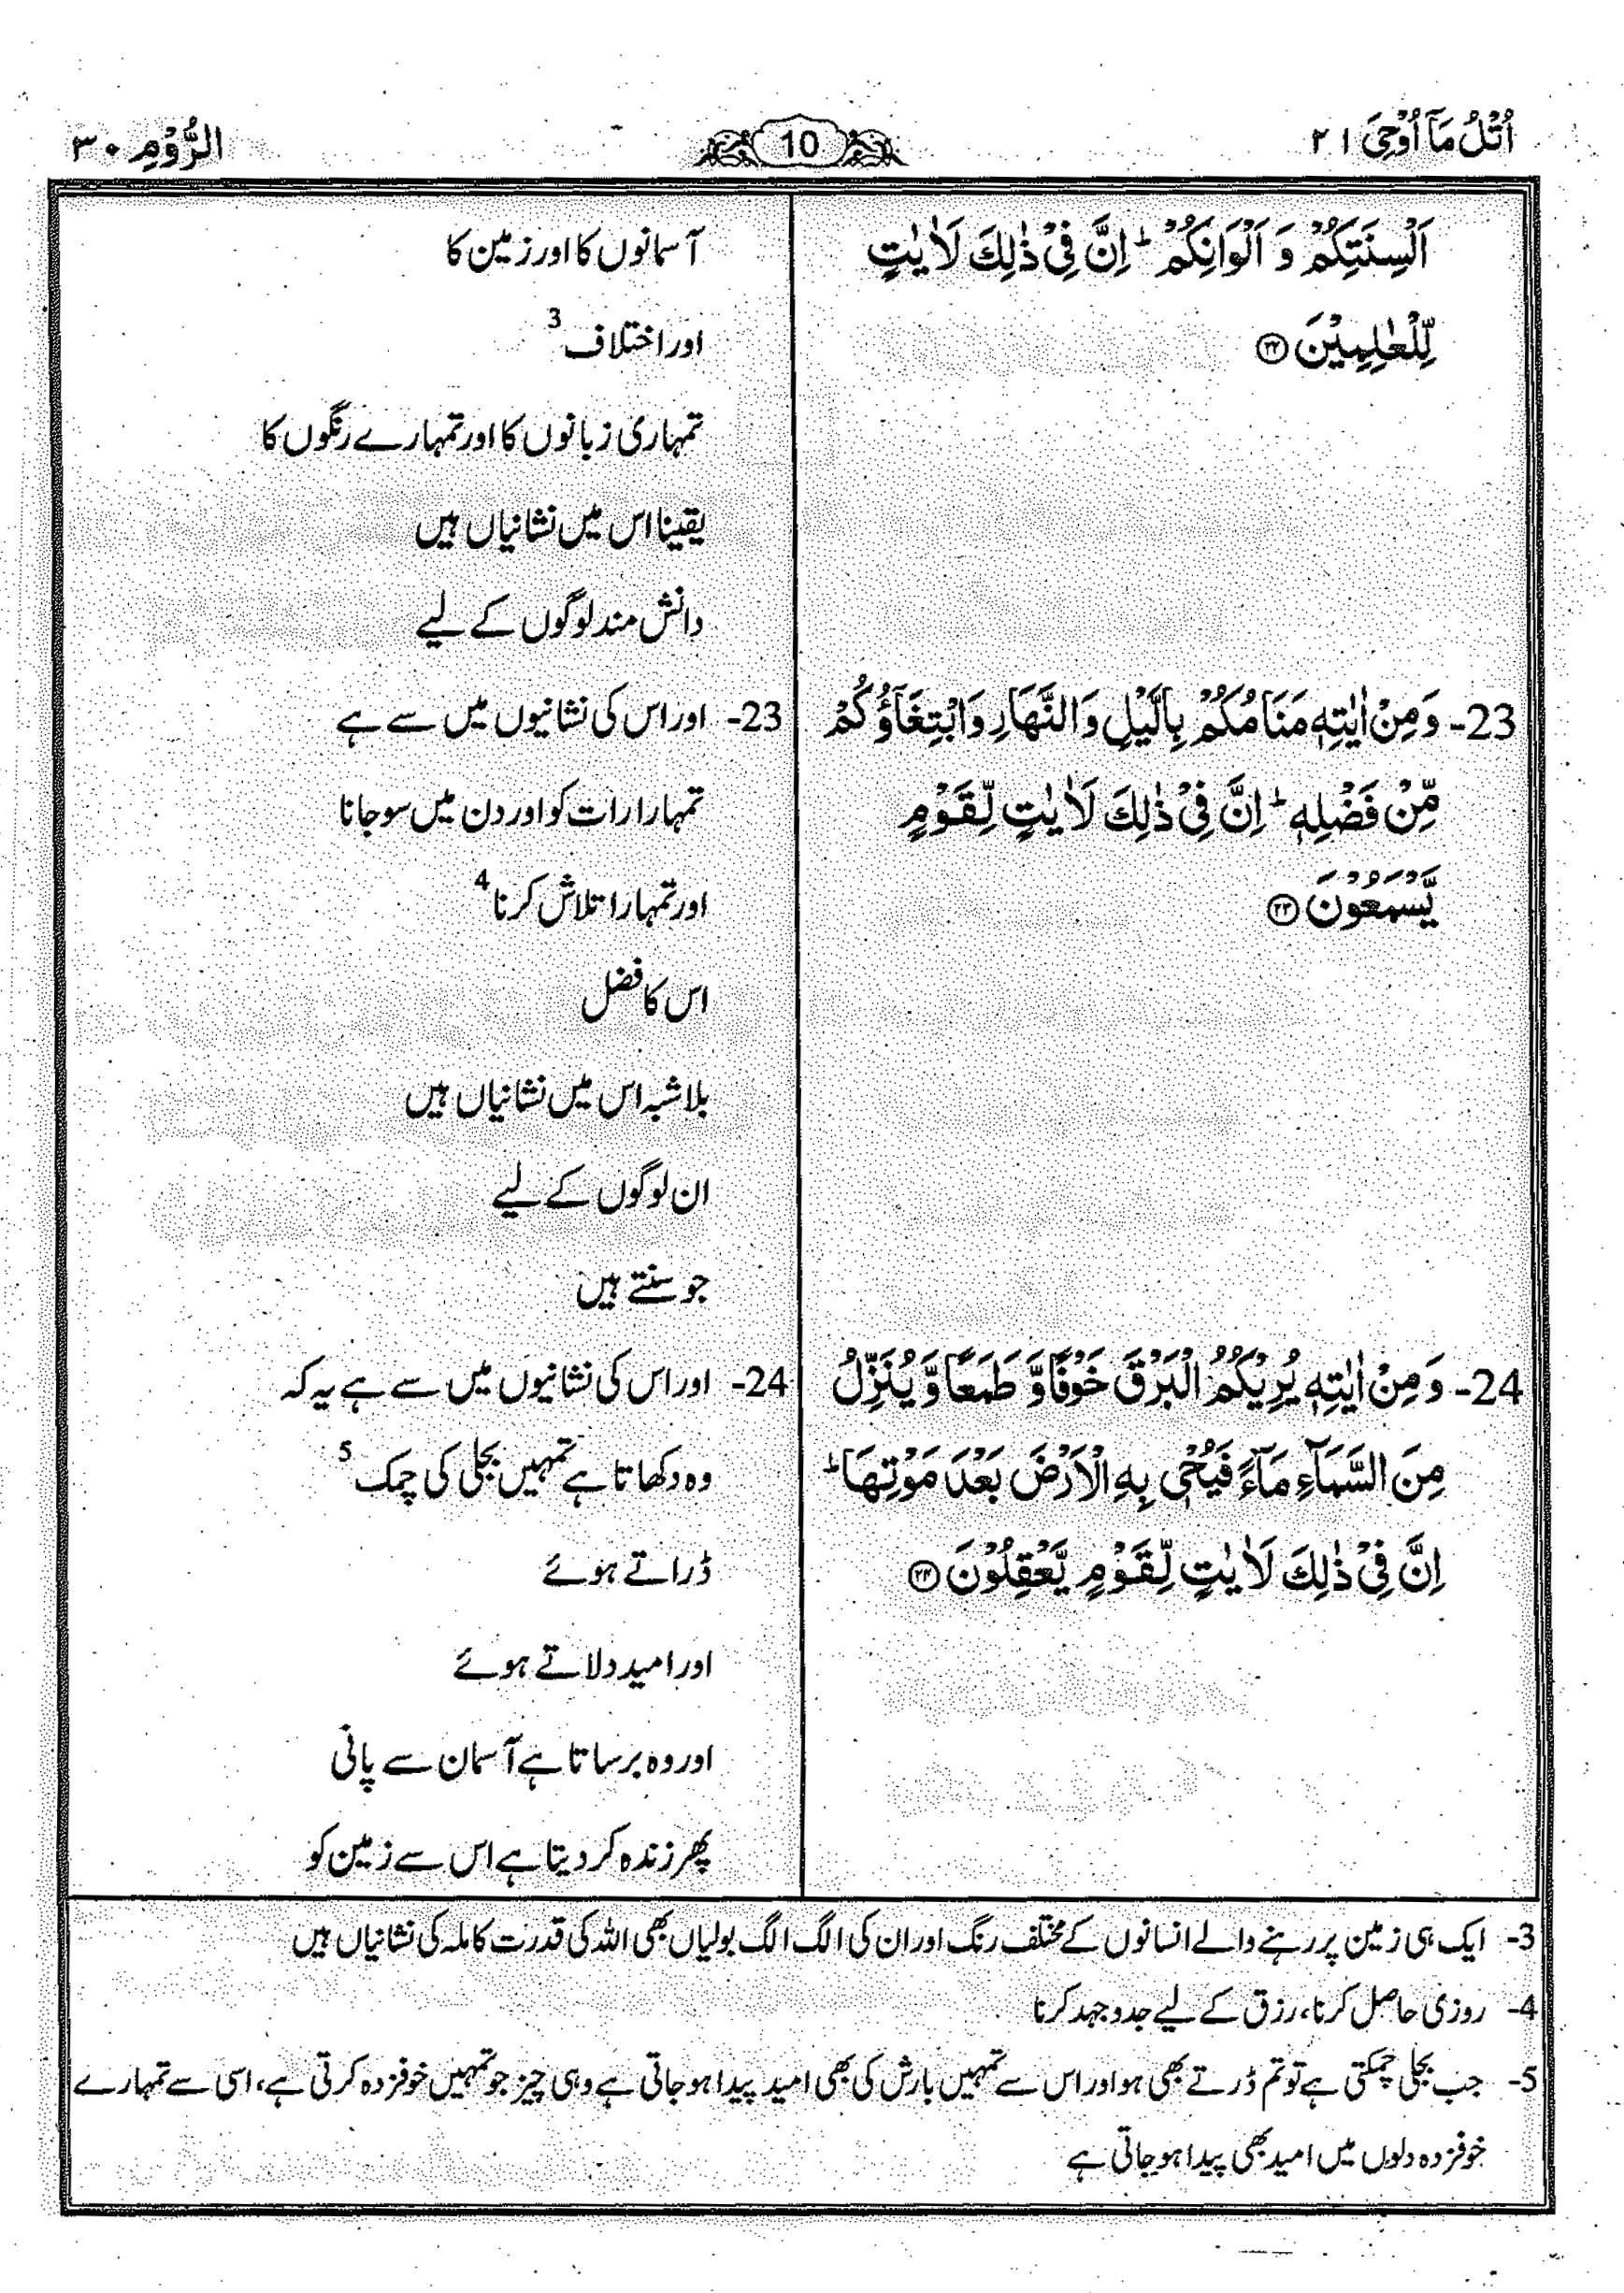 اُتْلُ مَاۤ اُوْحِیَ ۲۱
10
الرُّوْمِ ۳۰
اَلْسِنَتِكُمْ وَ اَلْوَانِكُمْ ؕ اِنَّ فِیْ ذٰلِكَ لَاٰیٰتٍ
لِّلْعٰلِمِیْنَ ۲۲
23- وَمِنْ اٰیٰتِهٖ مَنَامُكُمْ بِالَّیْلِ وَالنَّهَارِ وَابْتِغَآؤُكُمْ
مِّنْ فَضْلِهٖ ؕ اِنَّ فِیْ ذٰلِكَ لَاٰیٰتٍ لِّقَوْمٍ
یَّسْمَعُوْنَ ۲۳
24- وَ مِنْ اٰیٰتِهٖ یُرِیْكُمُ الْبَرْقَ خَوْفًا وَّ طَمَعًا وَّ یُنَزِّلُ
مِنَ السَّمَآءِ مَآءً فَیُحْیٖ بِهِ الْاَرْضَ بَعْدَ مَوْتِهَا ؕ
اِنَّ فِیْ ذٰلِكَ لَاٰیٰتٍ لِّقَوْمٍ یَّعْقِلُوْنَ ۲۴
آسمانوں کا اور زمین کا
اور اختلاف 3
تمہاری زبانوں کا اور تمہارے رنگوں کا
یقینا اس میں نشانیاں ہیں
دانش مند لوگوں کے لیے
23- اور اس کی نشانیوں میں سے ہے
تمہارا رات کو اور دن میں سو جانا
اور تمہارا تلاش کرنا 4
اس کا فضل
بلاشبہ اس میں نشانیاں ہیں
ان لوگوں کے لیے
جو سنتے ہیں
24- اور اس کی نشانیوں میں سے ہے یہ کہ
وہ دکھاتا ہے تمہیں بجلی کی چمک 5
ڈراتے ہوئے
اور امید دلاتے ہوئے
اور وہ برساتا ہے آسمان سے پانی
پھر زندہ کر دیتا ہے اس سے زمین کو
3- ایک ہی زمین پر رہنے والے انسانوں کے مختلف رنگ اور ان کی الگ الگ بولیاں بھی اللہ کی قدرت کاملہ کی نشانیاں ہیں
4- روزی حاصل کرنا، رزق کے لیے جدوجہد کرنا
5- جب بجلی چمکتی ہے تو تم ڈرتے بھی ہو اور اس سے تمہیں بارش کی بھی امید پیدا ہو جاتی ہے وہی چیز جو تمہیں خوفزدہ کرتی ہے، اسی سے تمہارے
خوفزدہ دلوں میں امید بھی پیدا ہو جاتی ہے